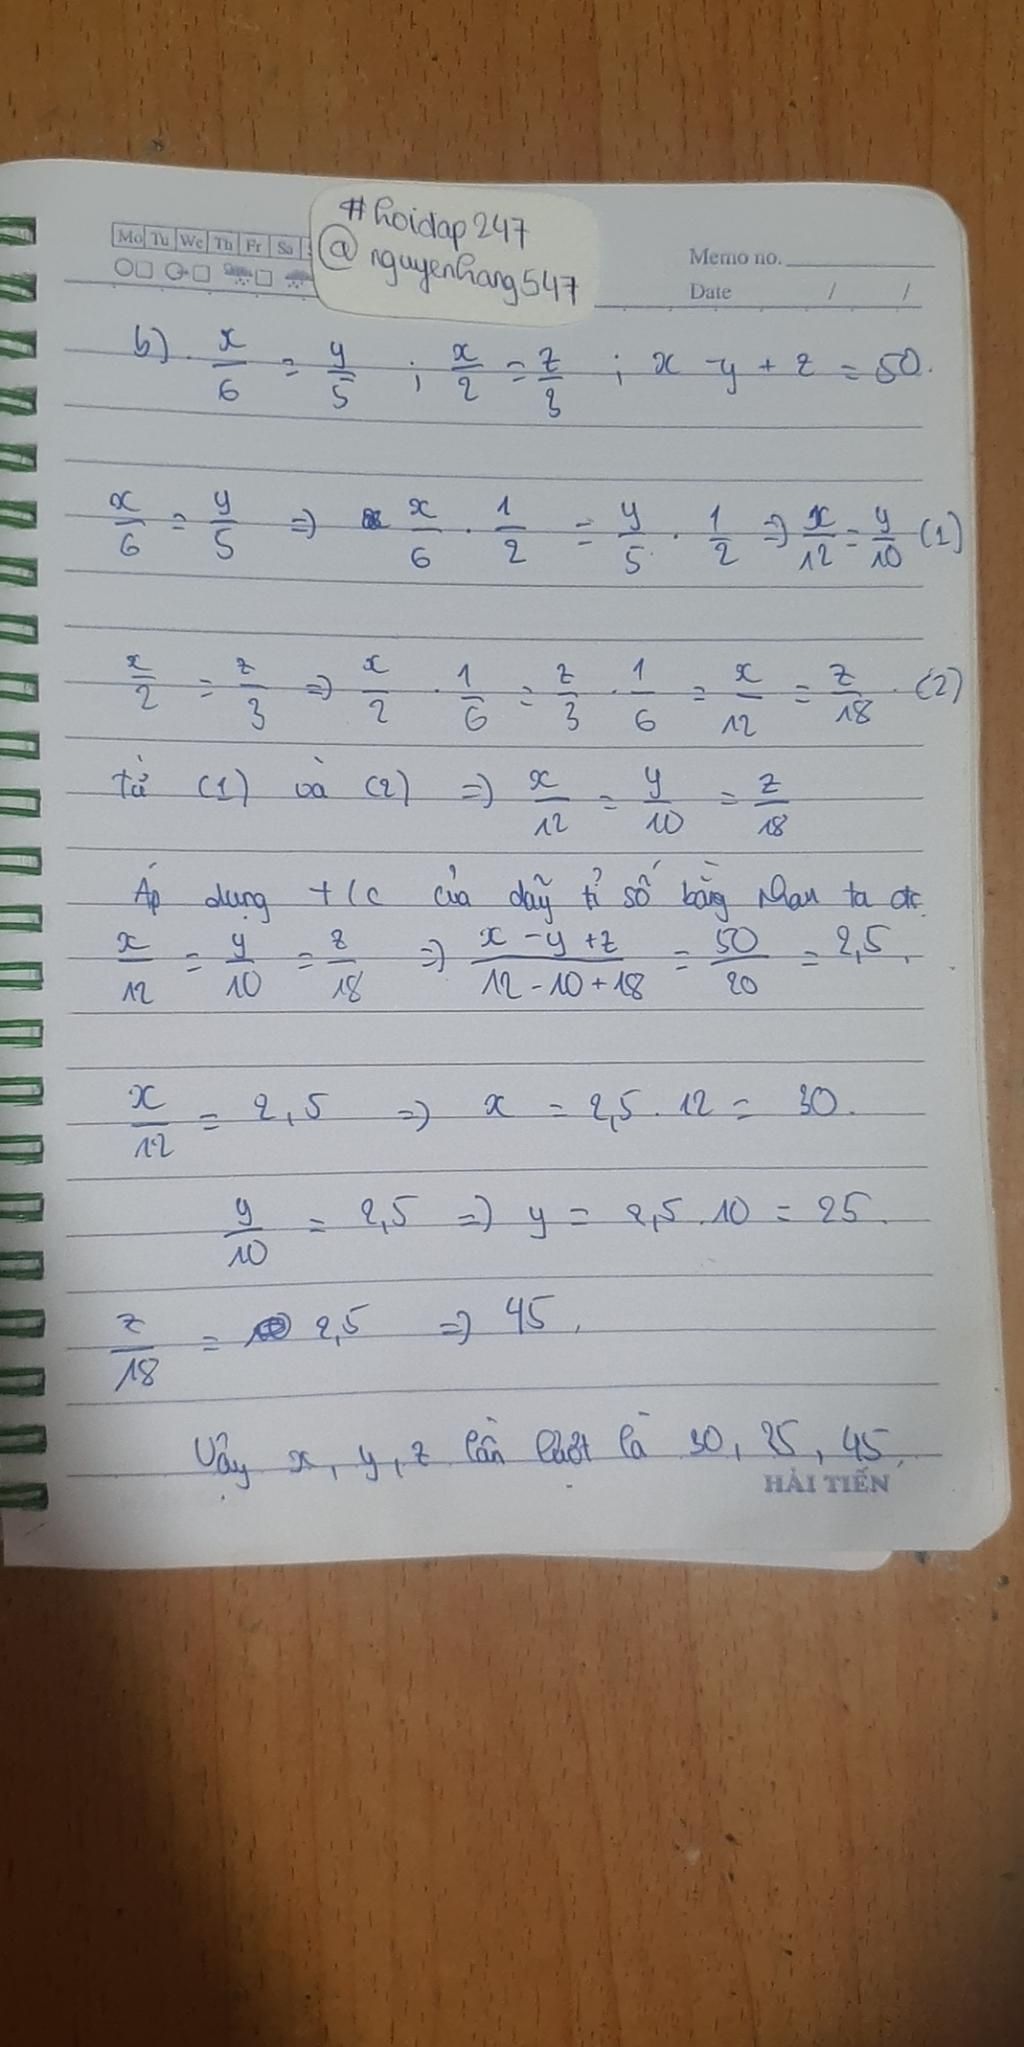 #hoidap247
@nguyenhang547
Mo Tu We Th Fr Sa
Memo no.
Date / /
b) x/6 = y/5 ; x/2 = z/3 ; x - y + z = 50.
x/6 = y/5 => x/6 . 1/2 = y/5 . 1/2 => x/12 = y/10 (1)
x/2 = z/3 => x/2 . 1/6 = z/3 . 1/6 = x/12 = z/18 . (2)
từ (1) và (2) => x/12 = y/10 = z/18
Áp dụng t/c của dãy tỉ số bằng nhau ta đc
x/12 = y/10 = z/18 => (x - y + z)/(12 - 10 + 18) = 50/20 = 2,5.
x/12 = 2,5 => x = 2,5 . 12 = 30.
y/10 = 2,5 => y = 2,5 . 10 = 25.
z/18 = 2,5 => 45.
Vậy x, y, z lần lượt là 30, 25, 45.
HẢI TIẾN